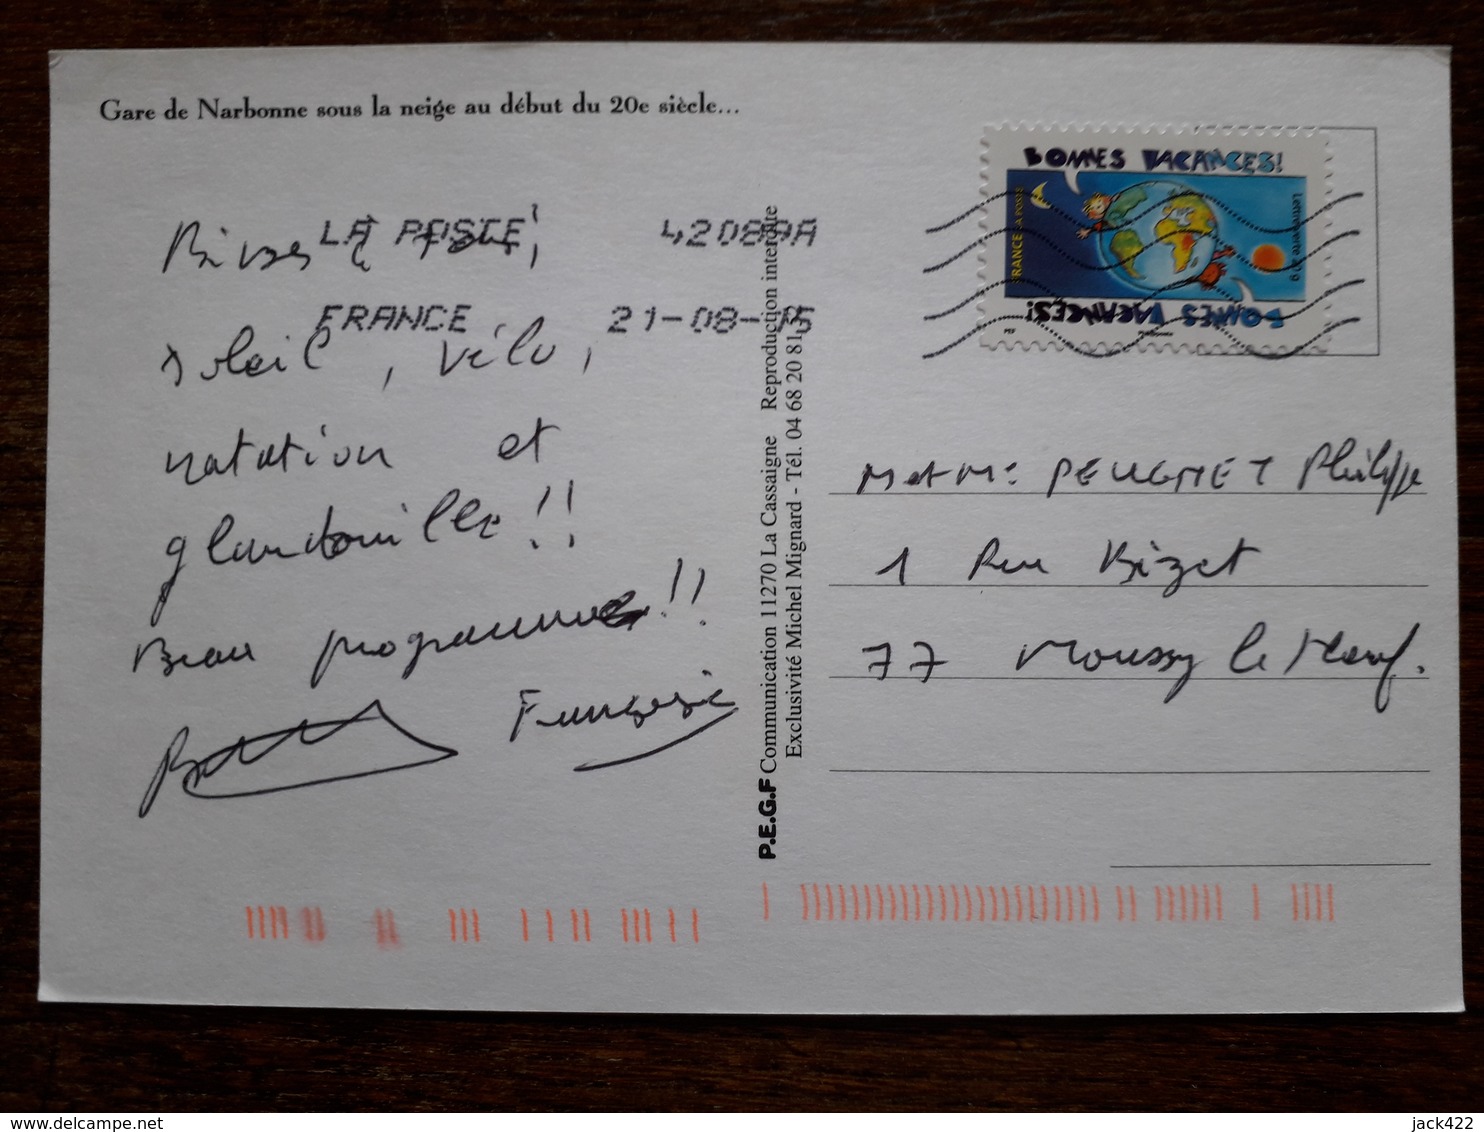 Gare de Narbonne sous la neige au début du 20e siècle...
BONNES VACANCES!
FRANCE LA POSTE
Lettre verte 20 g
BONNES VACANCES!
LA POSTE
FRANCE 21-08-15
Bises à tous,
soleil, vélo,
natation et
glandouille!!
Beau programme!!
Françoise
P.E.G.F Communication 11270 La Cassaigne Reproduction interdite
Exclusivité Michel Mignard - Tél. 04 68 20 81
M et Me PEUGNIET Philippe
1 Rue Bizet
77 Moussy le Neuf.
jack422